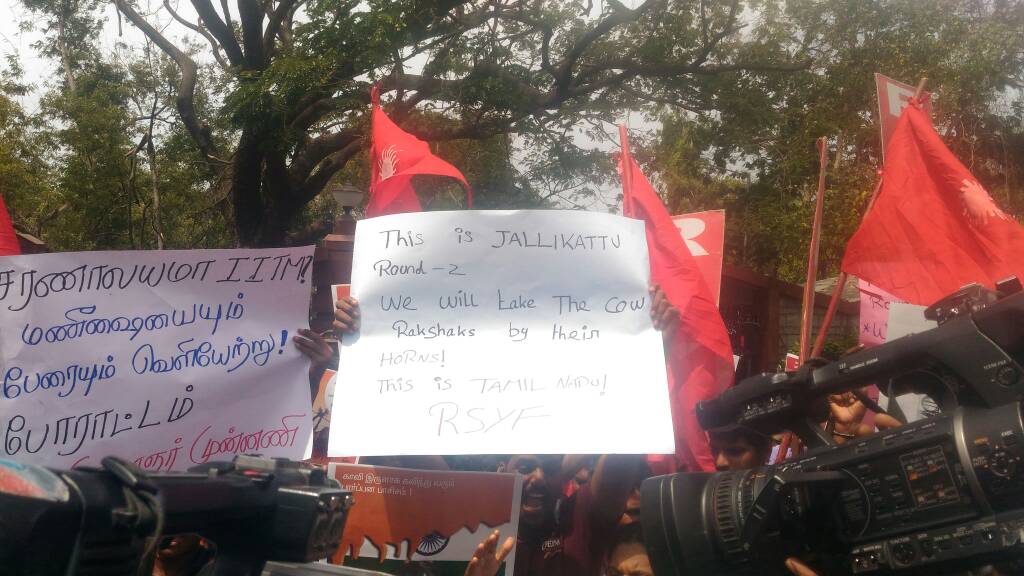 சரணாலயமா IITM?
மணீஷையையும்
பேரையும் வெளியேற்று!
போராட்டம்
முன்னணி
This is JALLIKATTU
Round-2
We will take The cow
Rakshaks by their
HORNS!
This is TAMIL NADU!
RSYF
காவி இருளாக கவிந்து வரும்
பார்ப்பன பாசிசம்!
R